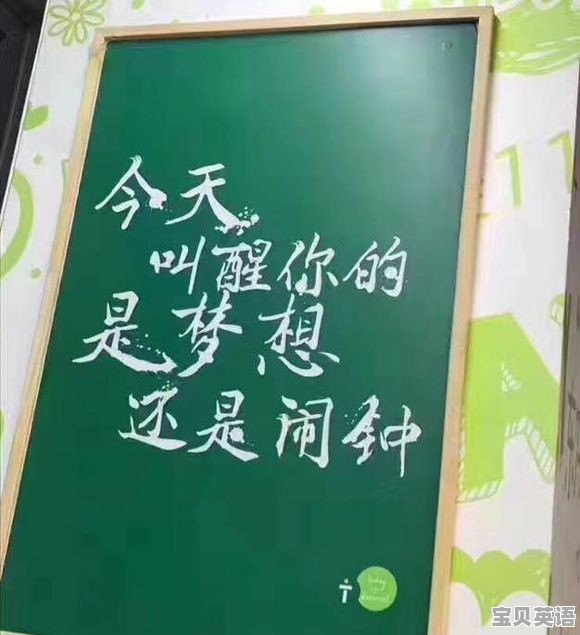 今天
叫醒你的
是梦想
还是闹钟
宝贝英语